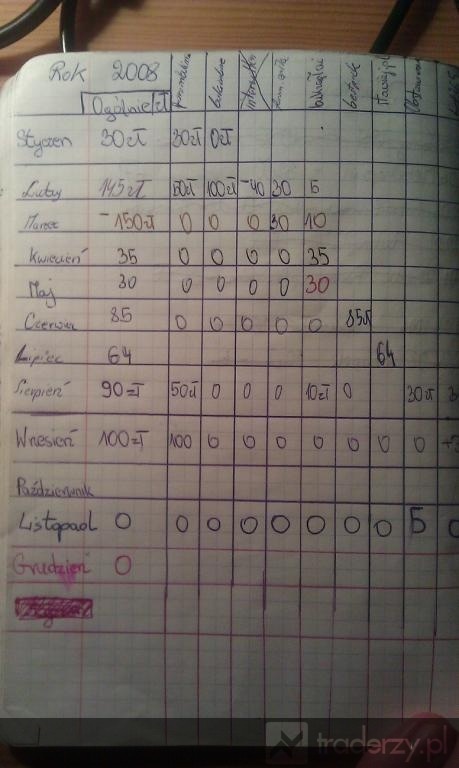 Rok 2008
Ogólnie zł
Styczeń 30zł 30zł 0zł
Luty 145zł 50zł 100zł -40 30 5
Marzec -150zł 0 0 0 30 10
Kwiecień 35 0 0 0 0 35
Maj 30 0 0 0 0 30
Czerwiec 85 0 0 0 0 0 85zł
Lipiec 64 64
Sierpień 90zł 50zł 0 0 0 10zł 0 30zł
Wrzesień 100zł 100 0 0 0 0 0 0 0
Październik
Listopad 0 0 0 0 0 0 0 0 5 0
Grudzień 0
traderzy.pl